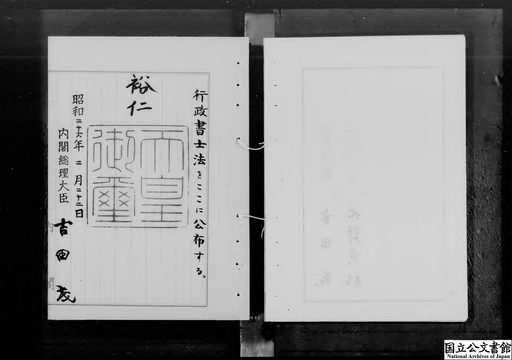 行政書士法をここに公布する。
裕仁
天皇
御璽
昭和二十六年二月二十二日
内閣総理大臣 吉田茂
国立公文書館
National Archives of Japan